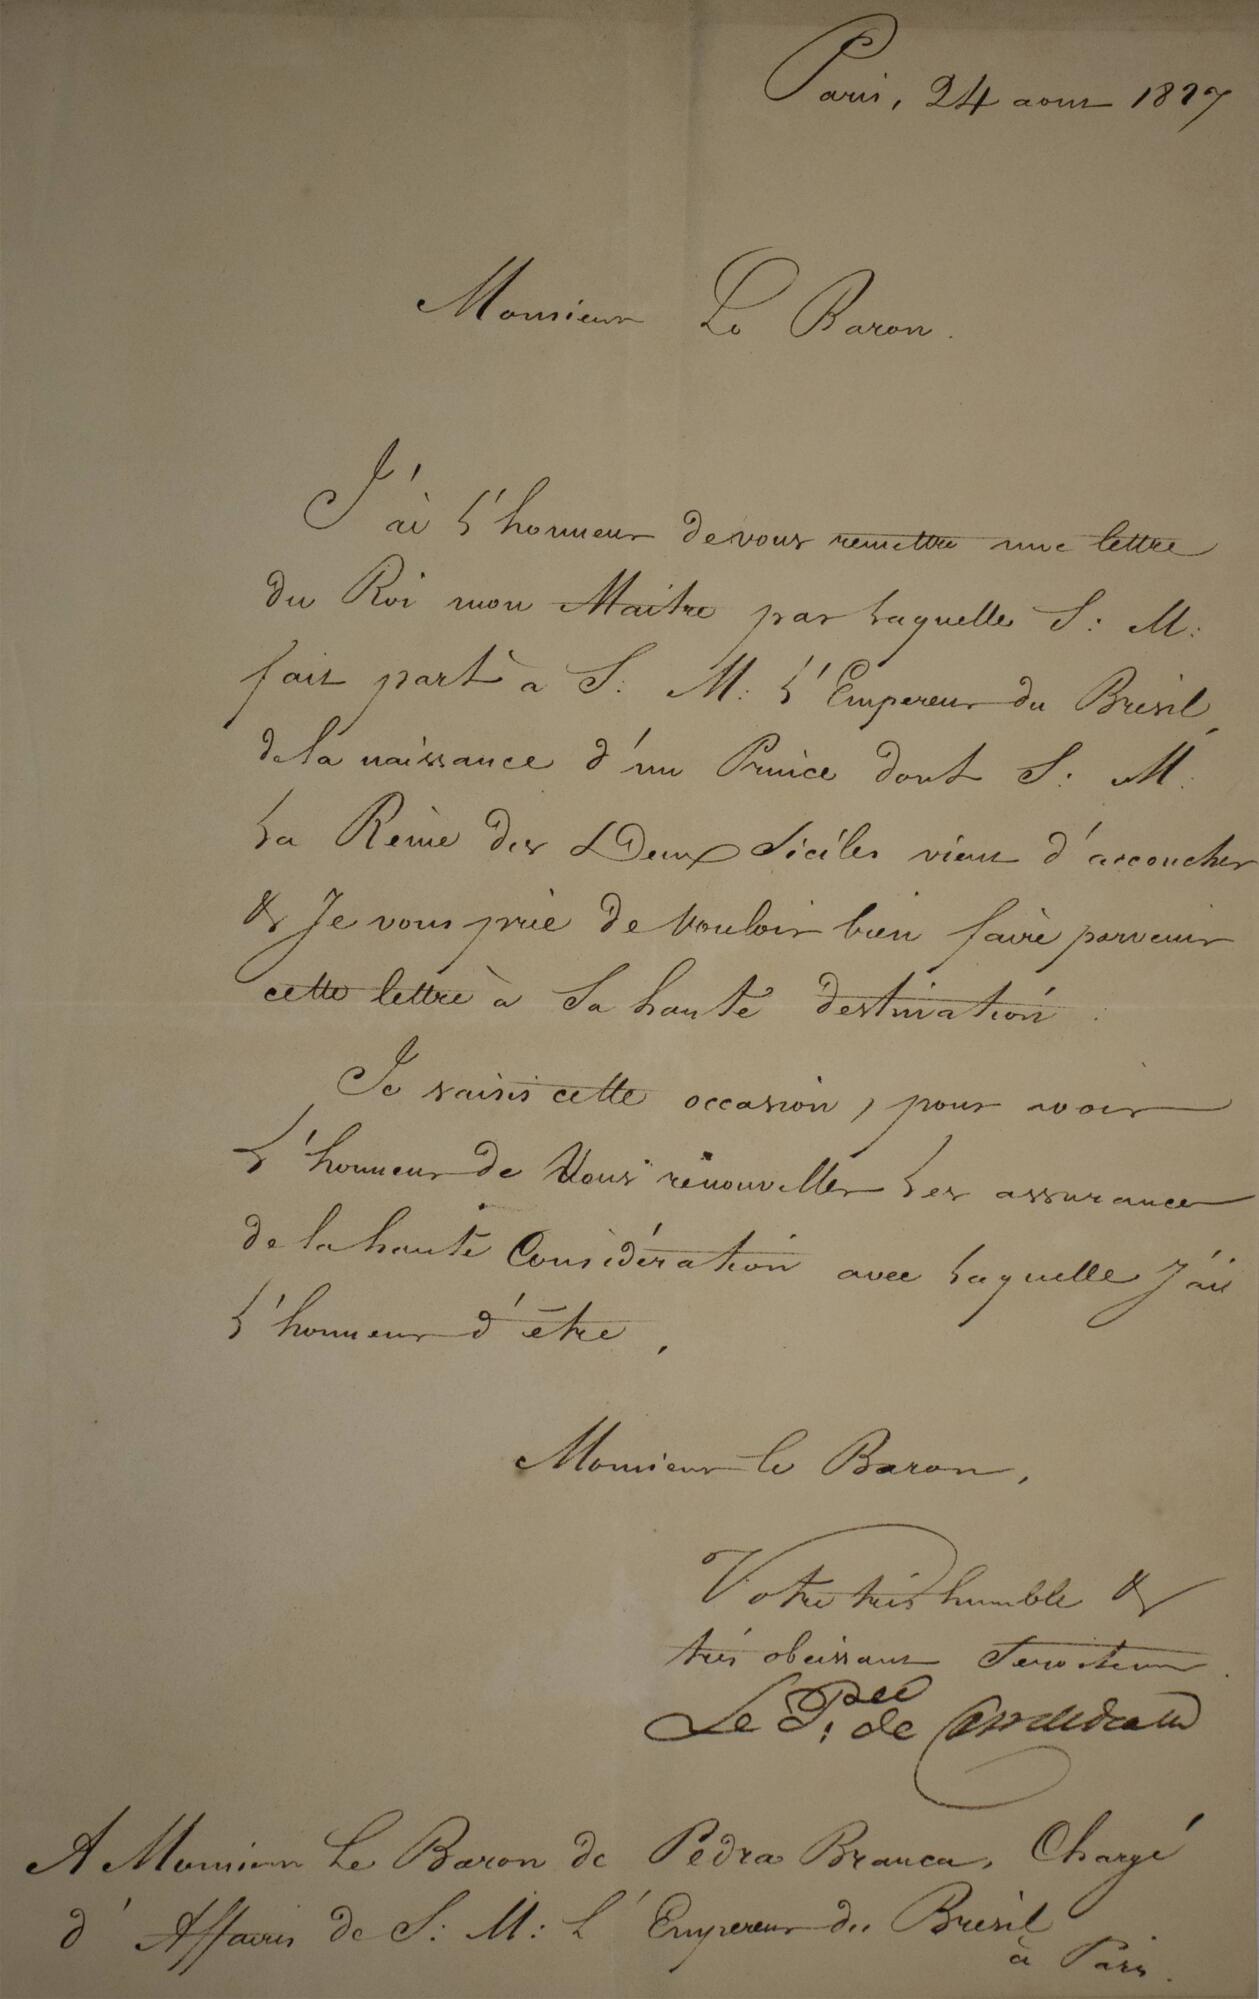 Paris, 24 aout 1827
Monsieur Le Baron.
J'ai l'honneur de vous remettre une lettre
du Roi mon Maitre par laquelle S: M:
fait part à S: M: l'Empereur du Brésil,
de la naissance d'un Prince dont S: M:
la Reine des Deux Siciles vient d'accoucher
& Je vous prie de vouloir bien faire parvenir
cette lettre à Sa haute destination.
Je saisis cette occasion, pour avoir
l'honneur de Vous renouveller les assurances
de la haute Considération avec laquelle J'ai
l'honneur d'être,
Monsieur le Baron,
Votre très humble &
très obeissant Serviteur.
Le P.ce de
A Monsieur Le Baron de Pedra Branca, Chargé
d'Affaires de S: M: L'Empereur du Brésil
à Paris.